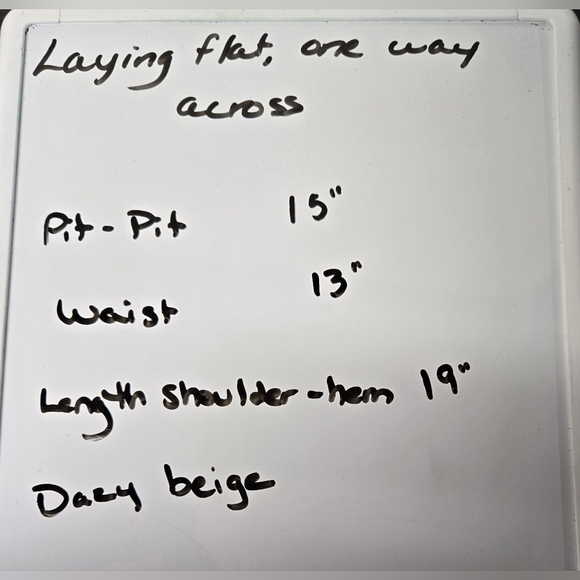 Laying flat, one way
across
Pit - Pit 15"
Waist 13"
Length shoulder - hem 19"
Dazy beige